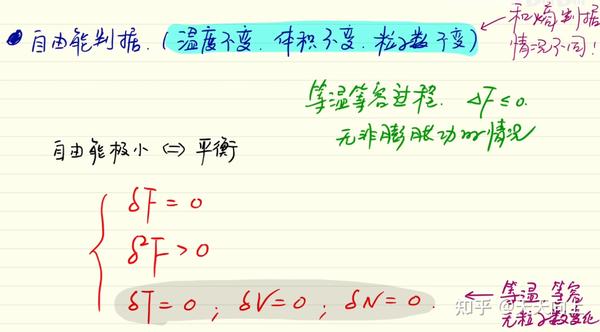 自由能判据.(温度不变.体积不变.粒子数不变)
和熵判据
情况不同!
等温等容过程. ΔF≤0.
无非膨胀功的情况
自由能极小 ⇔ 平衡
δF = 0
δ²F > 0
δT = 0 ; δV = 0 ; δN = 0 .
等温 等容
无粒子数变化
知乎